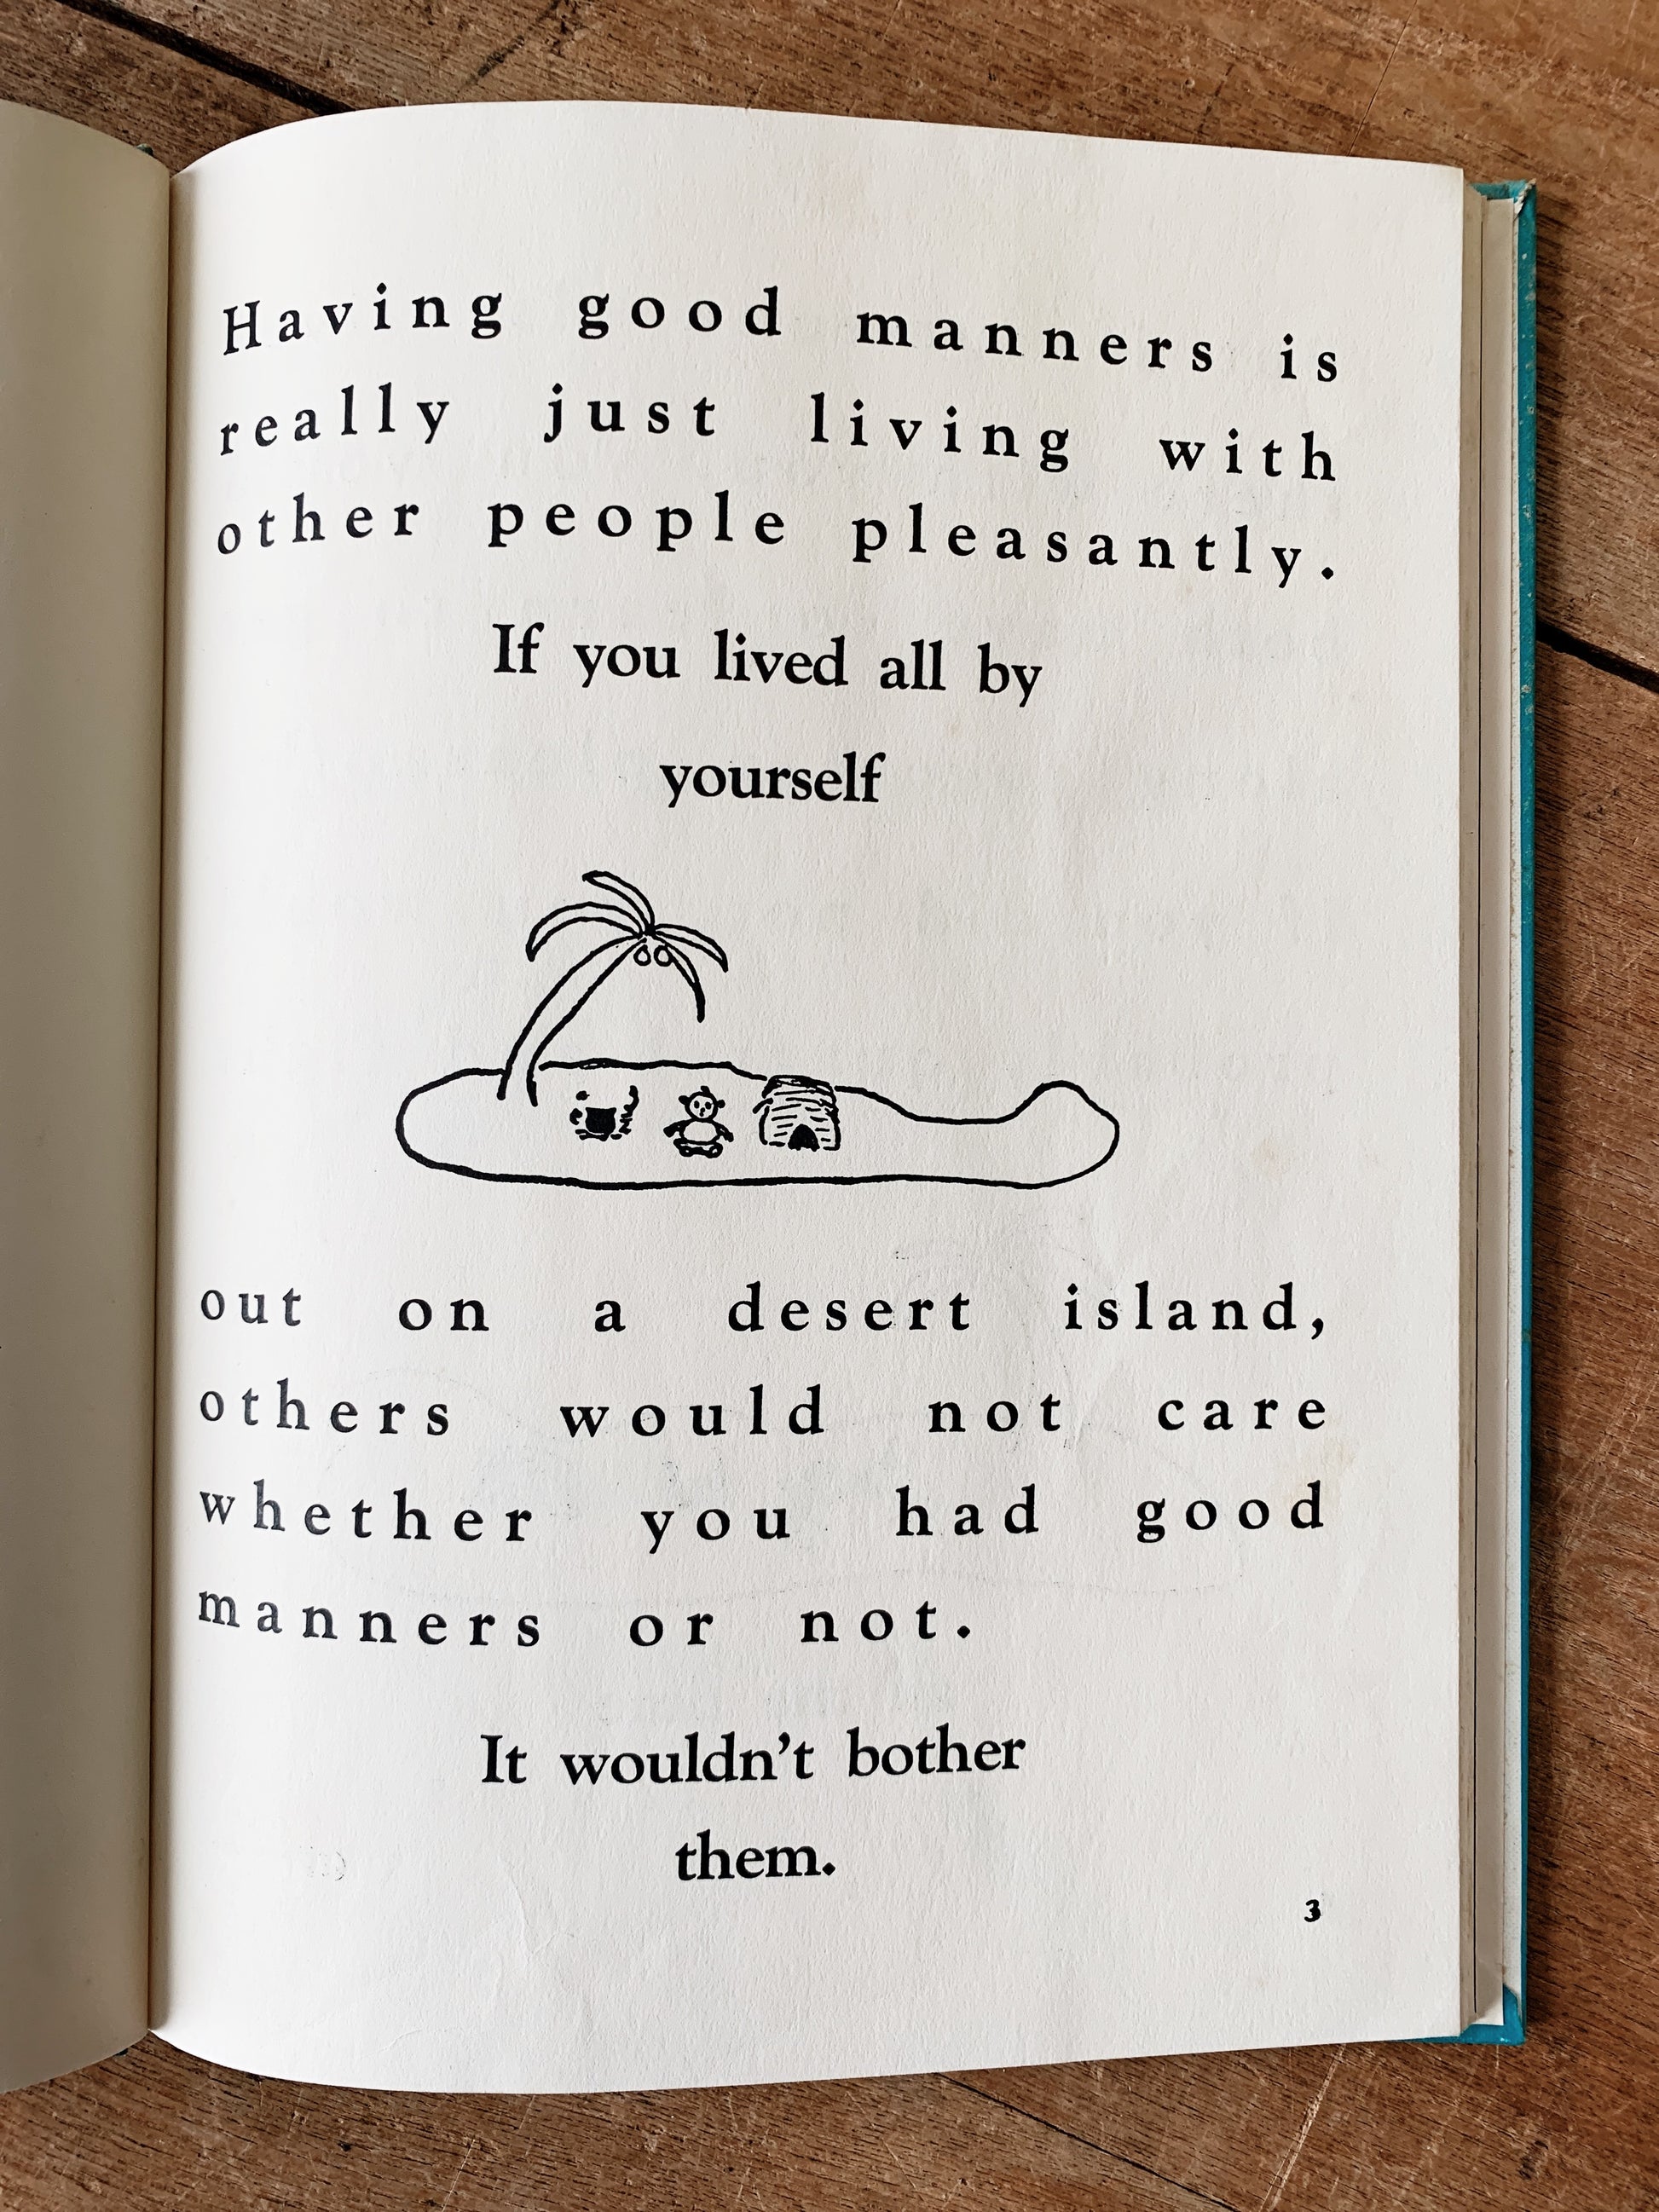 Having good manners is
really just living with
other people pleasantly.
If you lived all by
yourself
out on a desert island,
others would not care
whether you had good
manners or not.
It wouldn't bother
them.
3